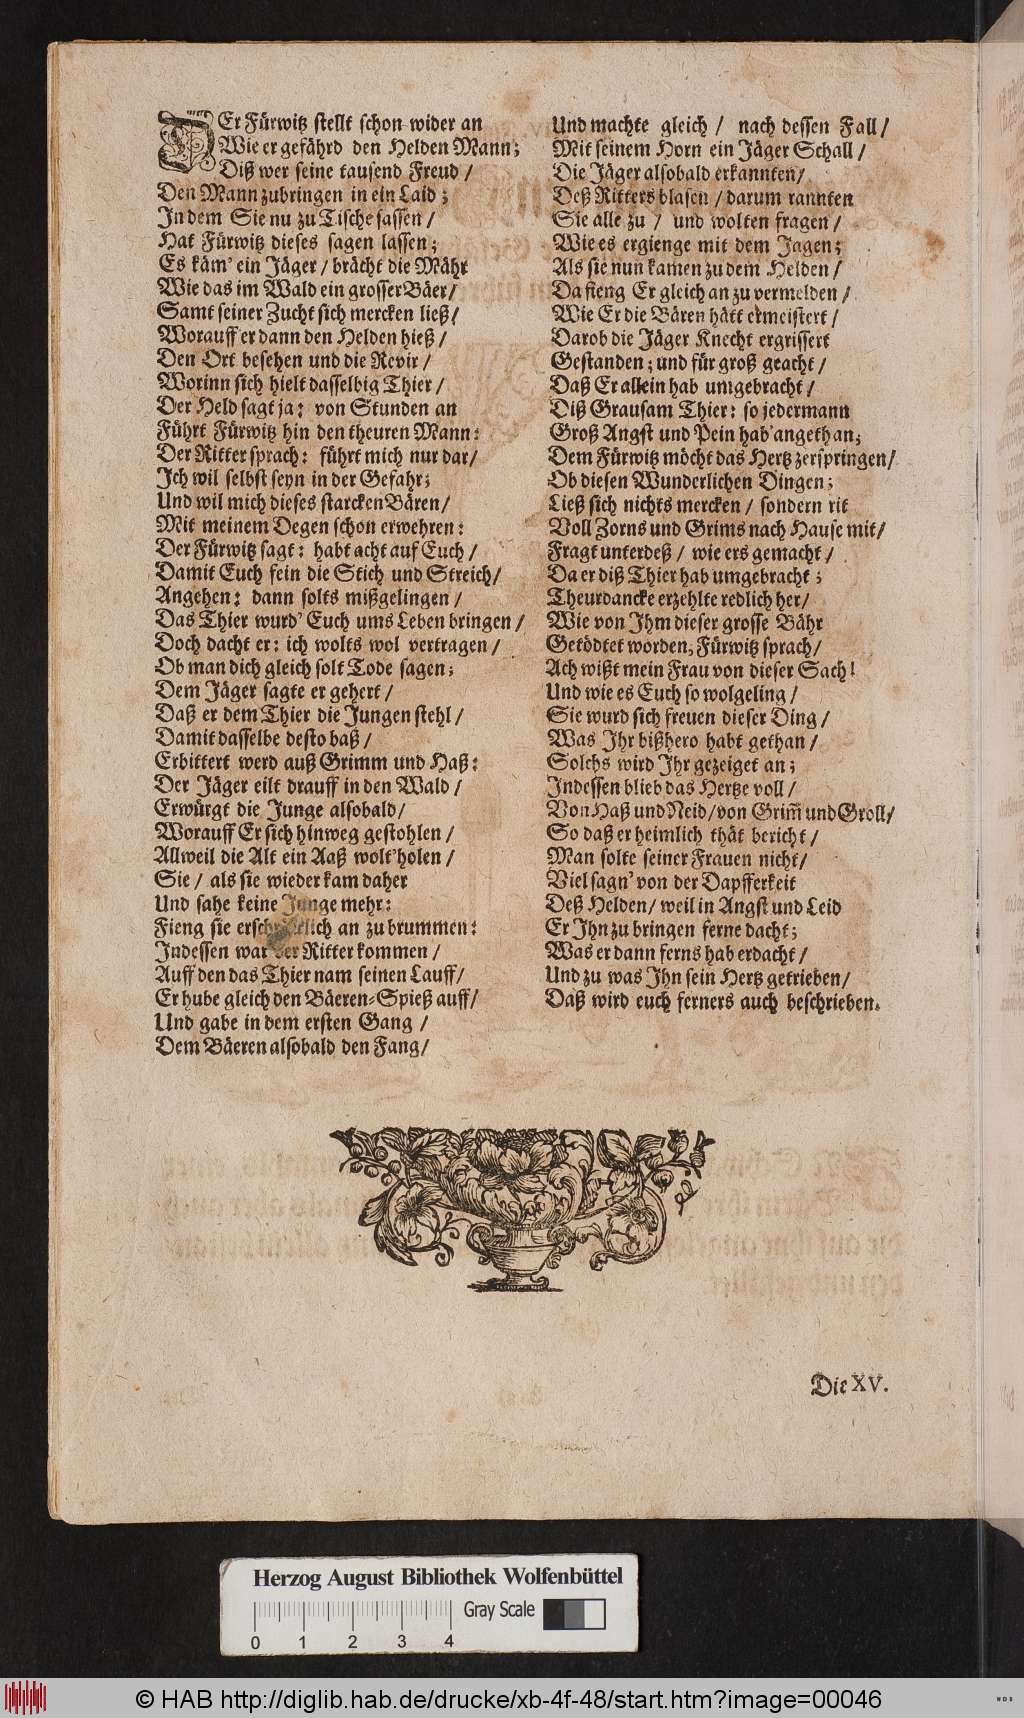 DEr Fürwitz stellt schon wider an
Wie er gefährd den Helden Mann;
Diß wer seine tausend Freud /
Den Mann zubringen in ein Laid;
In dem Sie nu zu Tische sassen /
Hat Fürwitz dieses sagen lassen;
Es käm' ein Jäger / brächt die Mähr
Wie das im Wald ein grosser Bäer /
Samt seiner Zucht sich mercken ließ /
Worauff er dann den Helden hieß /
Den Ort besehen und die Revir /
Worinn sich hielt dasselbig Thier /
Der Held sagt ja: von Stunden an
Führt Fürwitz hin den theuren Mann:
Der Ritter sprach: führt mich nur dar /
Ich wil selbst seyn in der Gefahr;
Und wil mich dieses starcken Bären /
Mit meinem Degen schon erwehren:
Der Fürwitz sagt: habt acht auf Euch /
Damit Euch fein die Stich und Streich /
Angehen: dann solts mißgelingen /
Das Thier wurd' Euch ums Leben bringen /
Doch dacht er: ich wolts wol vertragen /
Ob man dich gleich solt Tode sagen;
Dem Jäger sagte er gehert /
Daß er dem Thier die Jungen stehl /
Damit dasselbe desto baß /
Erbittert werd auß Grimm und Haß:
Der Jäger eilt drauff in den Wald /
Erwürgt die Junge alsobald /
Worauff Er sich hinweg gestohlen /
Allweil die Alt ein Aaß wolt' holen /
Sie / als sie wieder kam daher
Und sahe keine Junge mehr:
Fieng sie erschröcklich an zu brummen:
Indessen war der Ritter kommen /
Auff den das Thier nam seinen Lauff /
Er hube gleich den Bäeren-Spieß auff /
Und gabe in dem ersten Gang /
Dem Bäeren alsobald den Fang /
Und machte gleich / nach dessen Fall /
Mit seinem Horn ein Jäger Schall /
Die Jäger alsobald erkannten /
Deß Ritters blasen / darum rannten
Sie alle zu / und wolten fragen /
Wie es ergienge mit dem Jagen;
Als sie nun kamen zu dem Helden /
Da fieng Er gleich an zu vermelden /
Wie Er die Bären hätt ermeistert /
Darob die Jäger Knecht ergrissert
Gestanden; und für groß geacht /
Daß Er allein hab umgebracht /
Diß Grausam Thier: so jedermann
Groß Angst und Pein hab' angethan;
Dem Fürwitz möcht das Hertz zerspringen /
Ob diesen Wunderlichen Dingen;
Ließ sich nichts mercken / sondern rit
Voll Zorns und Grims nach Hause mit /
Fragt unterdeß / wie ers gemacht /
Da er diß Thier hab umgebracht;
Theurdancke erzehlte redlich her /
Wie von Ihm dieser grosse Bähr
Getödtet worden, Fürwitz sprach /
Ach wißt mein Frau von dieser Sach!
Und wie es Euch so wolgeling /
Sie wurd sich freuen dieser Ding /
Was Ihr bißhero habt gethan /
Solchs wird Ihr gezeiget an;
Indessen blieb das Hertze voll /
Von Haß und Neid / von Grim̃ und Groll /
So daß er heimlich thät bericht /
Man solte seiner Frauen nicht /
Viel sagn' von der Dapfferkeit
Deß Helden / weil in Angst und Leid
Er Ihn zu bringen ferne dacht;
Was er dann ferns hab erdacht /
Und zu was Ihn sein Hertz getrieben /
Daß wird euch ferners auch beschrieben.
Die XV.
Herzog August Bibliothek Wolfenbüttel
Gray Scale
0 1 2 3 4
© HAB http://diglib.hab.de/drucke/xb-4f-48/start.htm?image=00046